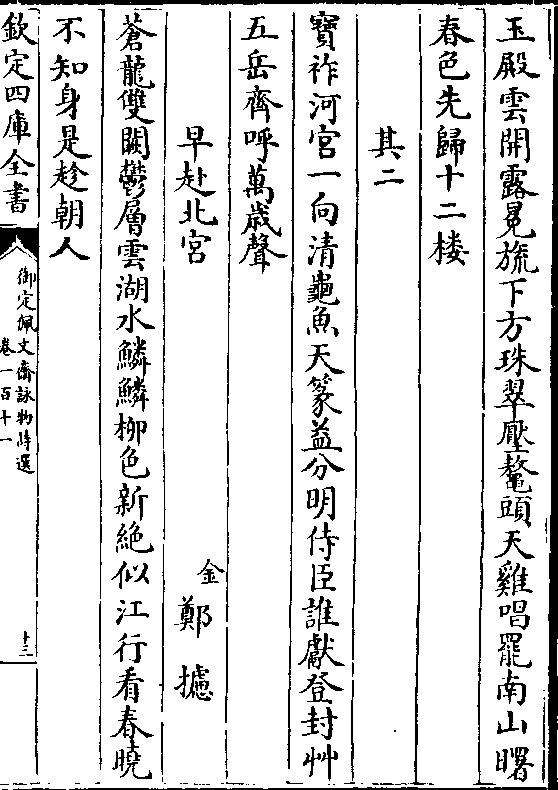 玉殿雲開露冕旒下方珠翠壓鼇頭天雞唱罷南山曙
春色先歸十二楼
其二
寶祚河宫一向清龜魚天篆益分明侍臣誰獻登封艸
五岳齊呼萬歳聲
早赴北宫
金 鄭攄
蒼龍雙闕鬱層雲湖水鱗鱗栁色新絶似江行看春曉
不知身是趁朝人
欽定四庫全書
御定佩文齋詠物詩選
卷一百十一
十三